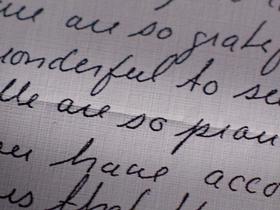 are so gratef
wonderful to se
We are so prou
ou have acco
is that